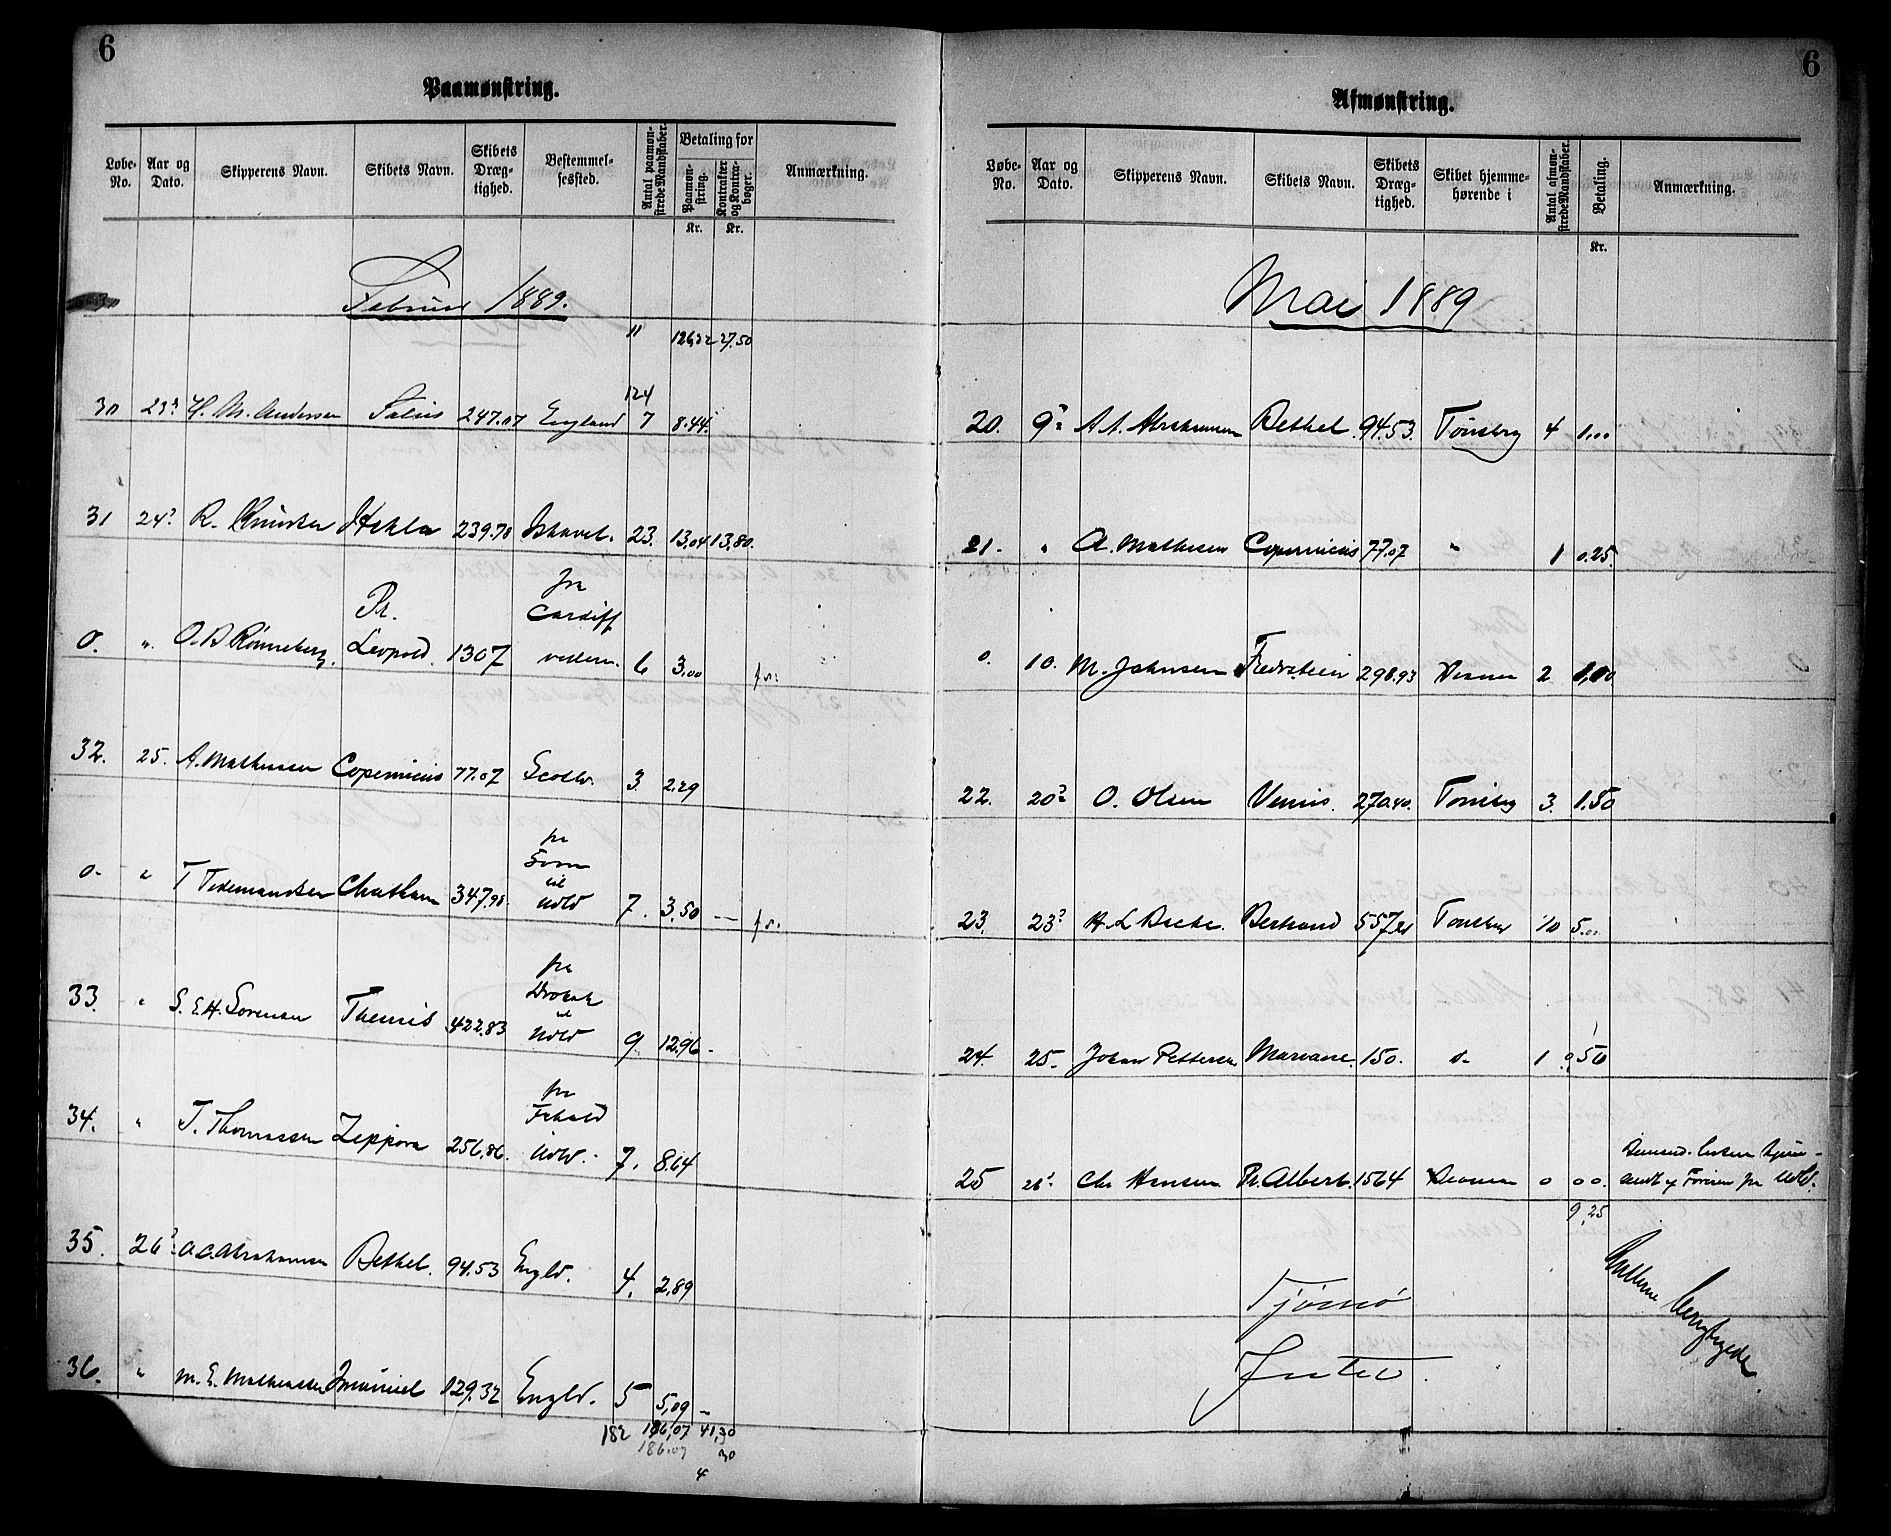 6
Paamønstring.
Løbe-No. Aar og Dato. Skipperens Navn. Skibets Navn. Skibets Dræg-tighed. Bestemmel-sessted. Antal paamøn-strede Mandskaber. Betaling for Paamøn-string. Kr. Kontrakter og Kontra-bøger. Kr. Anmærkning.
Februar 1889.
" 126,22 27.50
124
30 23 H. M. Andersen Julius 247.07 England 7 8.44.
31 24 R. Knudsen Hekla 239.78 Ishavet. 23. 13,04 13,80.
0. " O. B Rønneberg. Pr. Leopold. 1307 fra Cardiff 6 3,00
32. 25. A. Mathiesen Copernicus 77.07 Scotld. 3. 2.29
0. " T Tidemandsen Chatham 347.98. fra til Udld 7. 3,50 —
33. " S. E. H. Sørensen Themis 422.83 fra Drøbak til Udld 9 12.96 -
34. " T. Thomassen Zeppora 256.86. fra Udld. 7. 8.64
35. 26 A. C. Abrahamsen Bethel. 94.53 Engld. 4. 2.89
36. " M. E. Mathiassen Imanuel 129.32 Engld. 5 5,09 –
182 186,07 41,30
186.07 30
4
6
Afmønstring.
Løbe-No. Aar og Dato. Skipperens Navn. Skibets Navn. Skibets Dræg-tighed. Skibet hjemme-hørende i Antal afmøn-strede Mandskaber. Betaling. Kr. Anmærkning.
Mai 1889
20. 9 A. A. Abrahamsen Bethel 94.53. Tønsberg 4 1.00
21. " A. Mathiesen Copernicus 77.07 " 1 0.25.
0. 10. M. Johnsen 298.93 2 1,00
22. 20 O. Olsen Venus. 270.40. Tønsbg 3. 1.50
23. 23 H. L Bache. Bertrand 557,21 Tønsberg 10 5.00
24. 25. Johan Pettersen Mariane. 150. d- 1 0,50
25 26 Chr Hansen Pr. Albert. 1564 0 00.
9,25
Tjømø